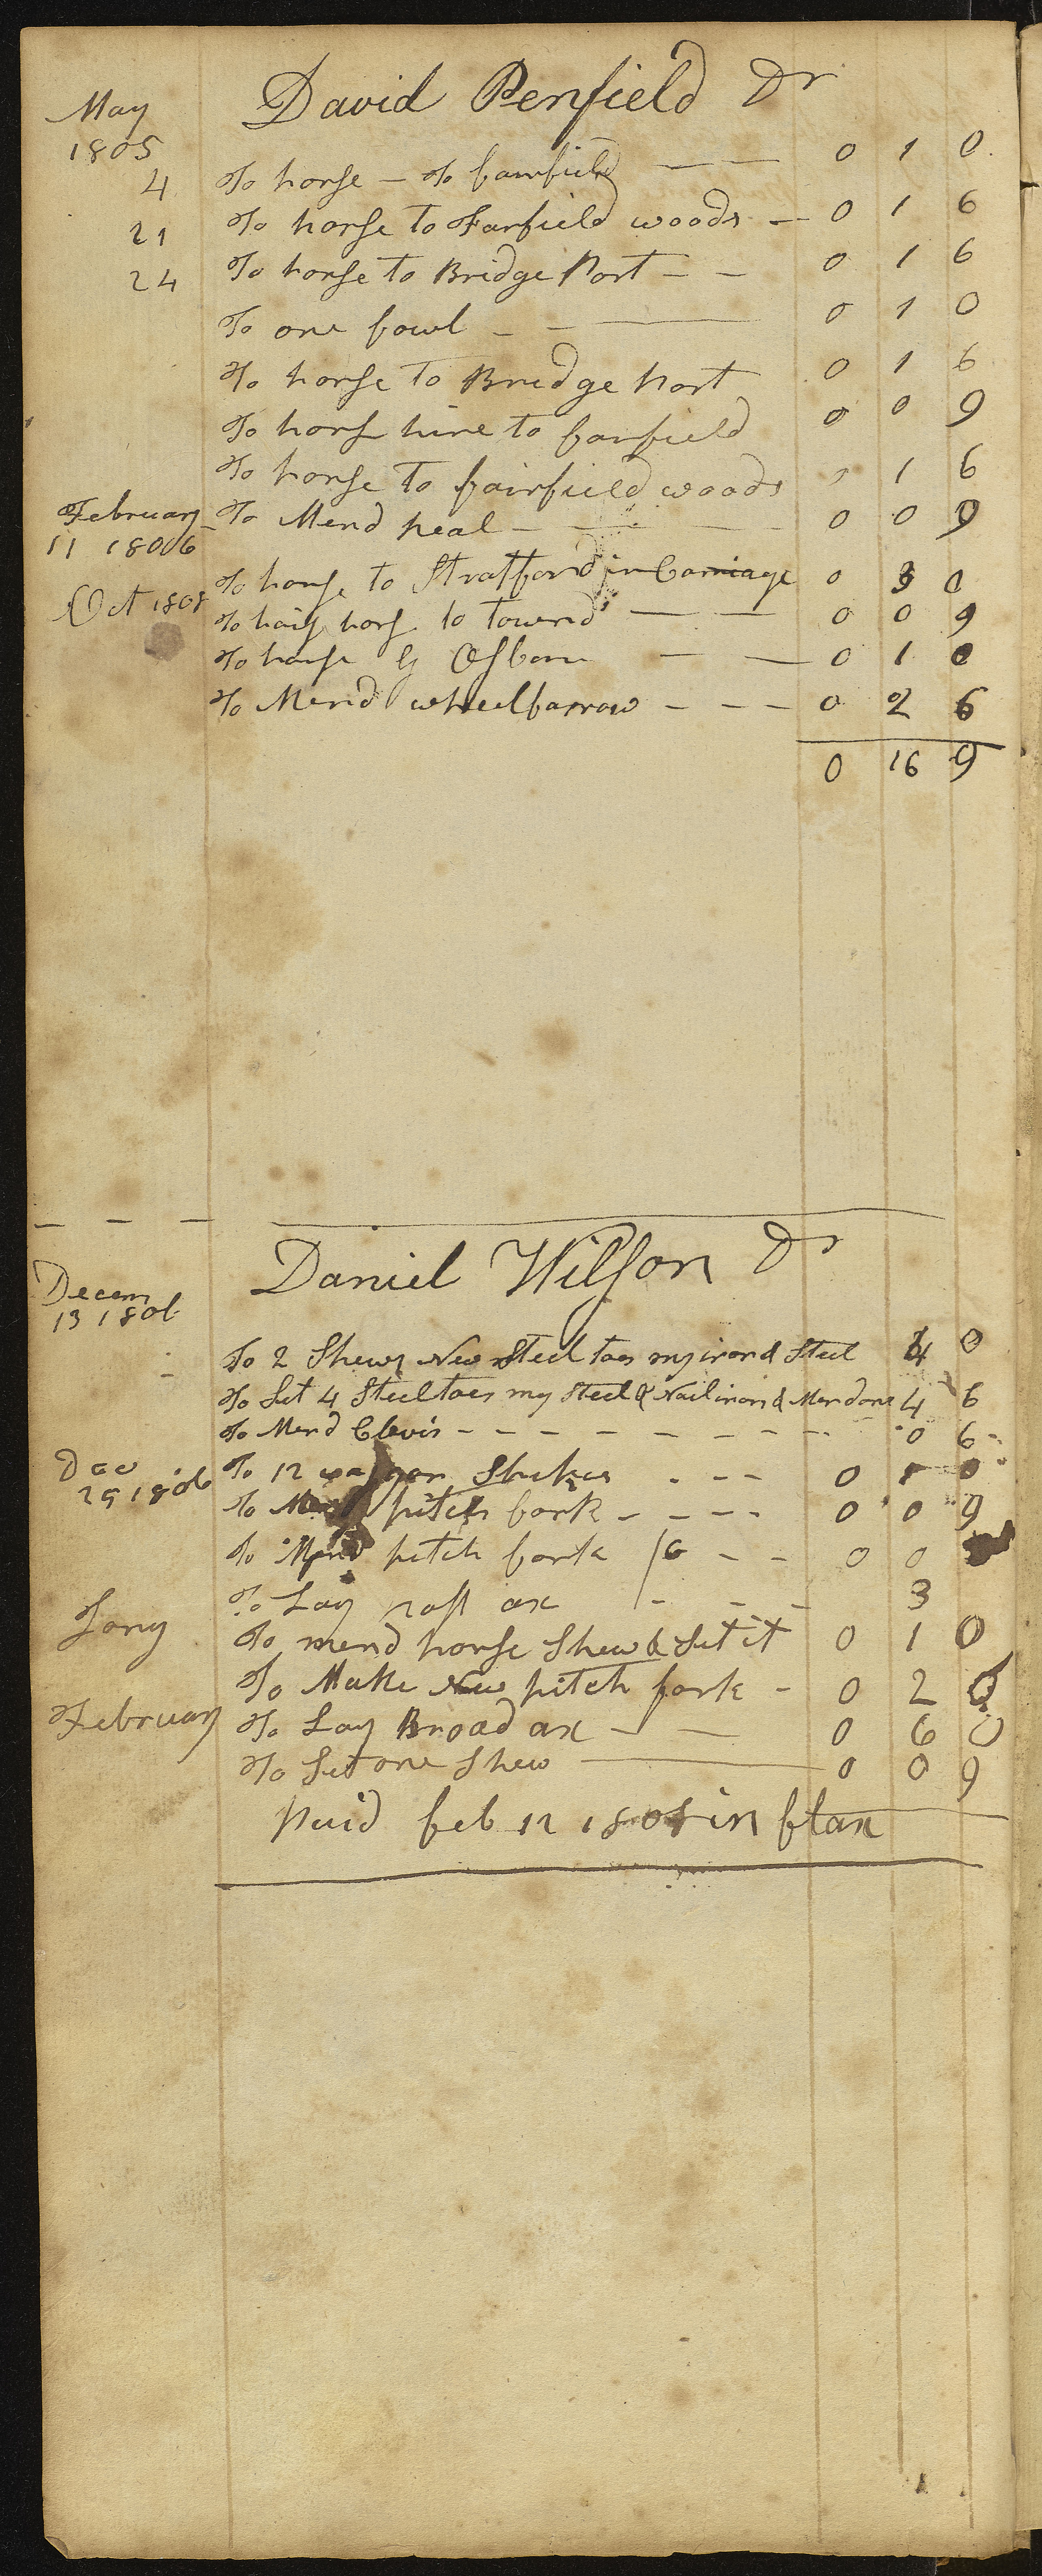 David Penfield Dr
May
1805
4 To horse - To fairfield 0 1 0
21 To horse to Farfield woods 0 1 6
24 To horse to Bridge Port 0 1 6
To one fowl 0 1 0
To horse to Bridge Port 0 1 6
To hors hire to fairfield 0 0 9
To horse to fairfield woods 0 1 6
February To Mend peal 0 0 9
11 1806
To horse to Stratford in Carriage 0 3 0
Oct 1808 To hors to townd 0 0 9
To horse Osborn 0 1 0
To Mend wheelbarrow 0 2 6
0 16 9
Daniel Wilson Dr
Decem
13 1806
To 2 Shews New Steel toes my iron & Steel 4 0
To Set 4 Steel toes my Steel & Nail iron & Mend one 4 6
To Mend Clevis 0 6
Dec To 12 0 1 0
29 1806
To Mend pitch fork 0 0 9
To Mend pitch fork /6 0 0
To Lay ax 3
Jany
To mend horse Shew & Set it 0 1 0
To Make New pitch fork 0 2
February To Lay Broad ax 0 6 0
To Set one Shew 0 0 9
Paid feb 12 in flax